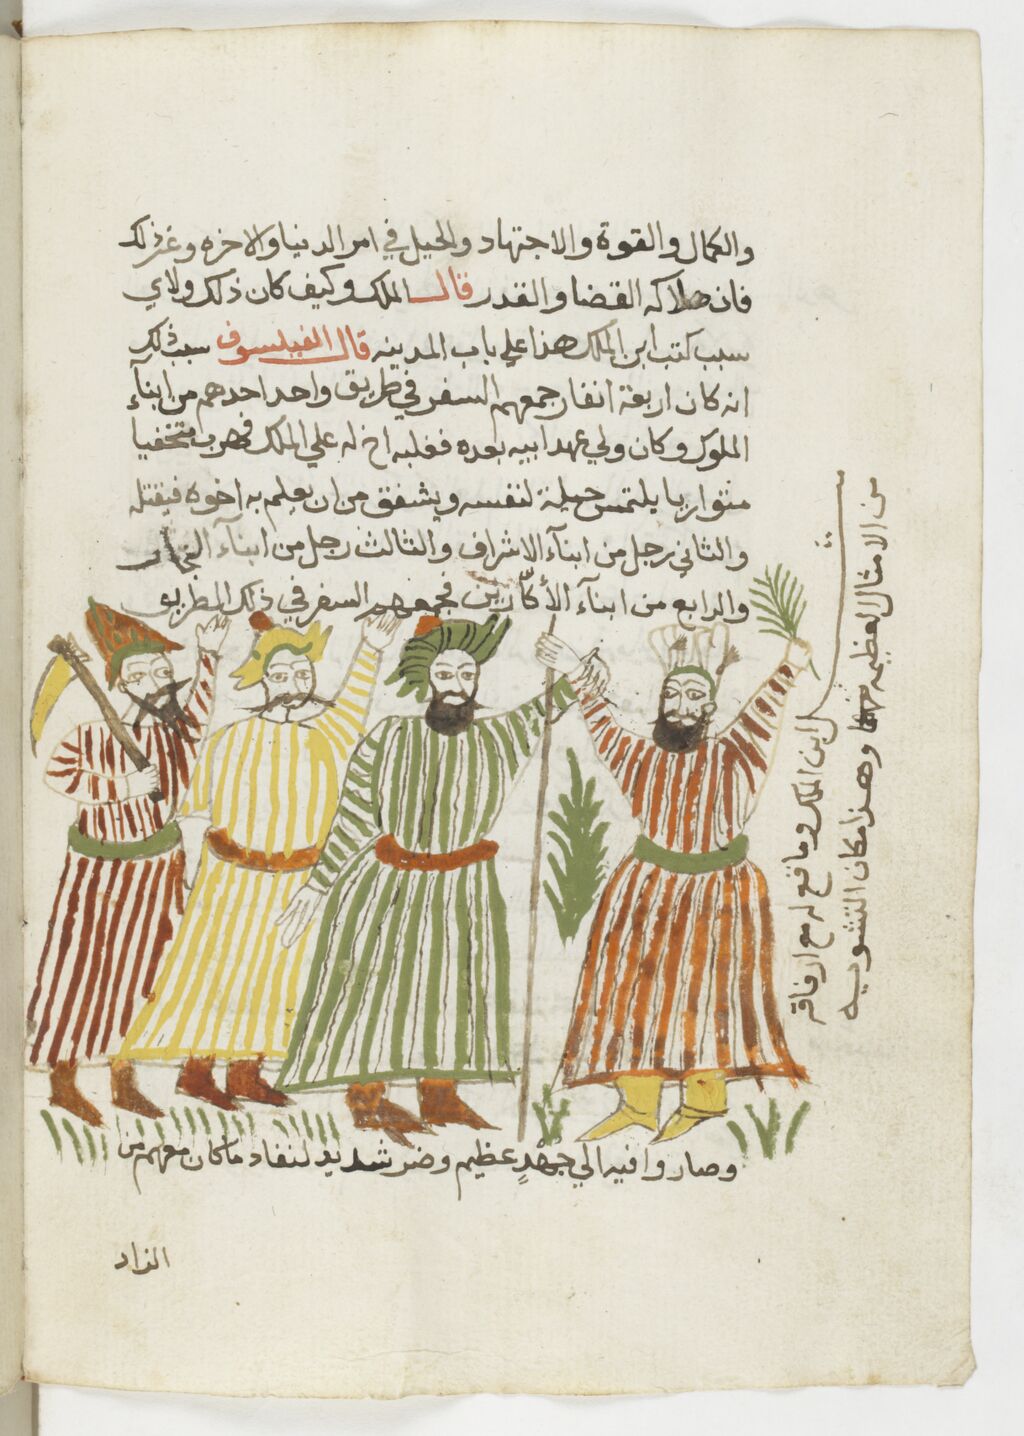 والكمال والقوة والاجتهاد والحيل في امر الدنيا والاخره وغير ذلك
فان ملاكه القضا والقدر قال الملك وكيف كان ذلك ولاي
سبب كتب ابن الملك هذا علي باب المدينه قال الفيلسوف سبب ذلك
انه كان اربعة انفار جمعهم السفر في طريق واحد احدهم من ابنآء
الملوك وكان ولي عهد ابيه بعده فغلبه اخ له علي الملك فهرب متخفيا
متواريا يلتمس حيلة لنفسه ويشفق من ان يعلم به اخوه فيقتله
والثاني رجل من ابنآء الاشراف والثالث رجل من ابنآء التجار
والرابع من ابنآء الأكّارين فجمعهم السفر في ذلك الطريق
ابن الملك وما وقع له مع ارفاقه
من الامثال العظيمه وهذا مكان التشويه
وصاروا فيه الي جَهْدٍ عظيم وضر شديد لنفاد ما كان معهم من
الزاد